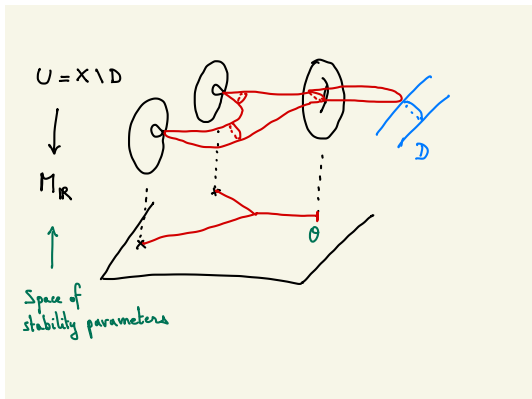 U = X \ D
M_ℝ
D
θ
Space of
stability parameters